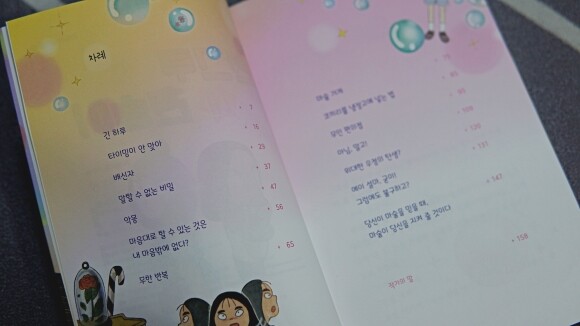 차례
긴 하루
타이밍이 안 맞아
배신자
말할 수 없는 비밀
악몽
마음대로 할 수 있는 것은
내 마음밖에 없다?
무한 반복
7
16
25
37
47
56
65
마술 카페
코끼리를 냉장고에 넣는 법
무인 편의점
아님, 말고!
위대한 우정의 탄생?
에이 설마, 굳이!
그럼에도 불구하고?
당신이 마술을 믿을 때,
마술이 당신을 지켜 줄 것이다
작가의 말
75
85
95
109
120
131
147
158